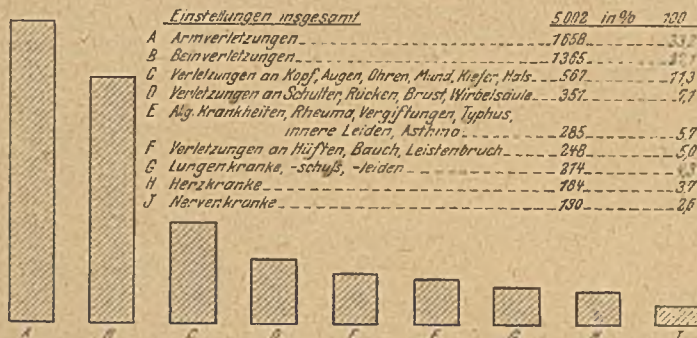 Einstellungen insgesamt 5002 in % 100
A Armverletzungen 1658
B Beinverletzungen 1365
C Verletzungen an Kopf, Augen, Ohren, Mund, Kiefer, Hals 567 11,3
D Verletzungen an Schulter, Rücken, Brust, Wirbelsäule 351 7,1
E Alg. Krankheiten, Rheuma, Vergiftungen, Typhus,
innere Leiden, Asthma 285 5,7
F Verletzungen an Hüften, Bauch, Leistenbruch 248 5,0
G Lungenkranke, -schuß, -leiden 214
H Herzkranke 184 3,7
J Nervenkranke 130 2,6
A C J